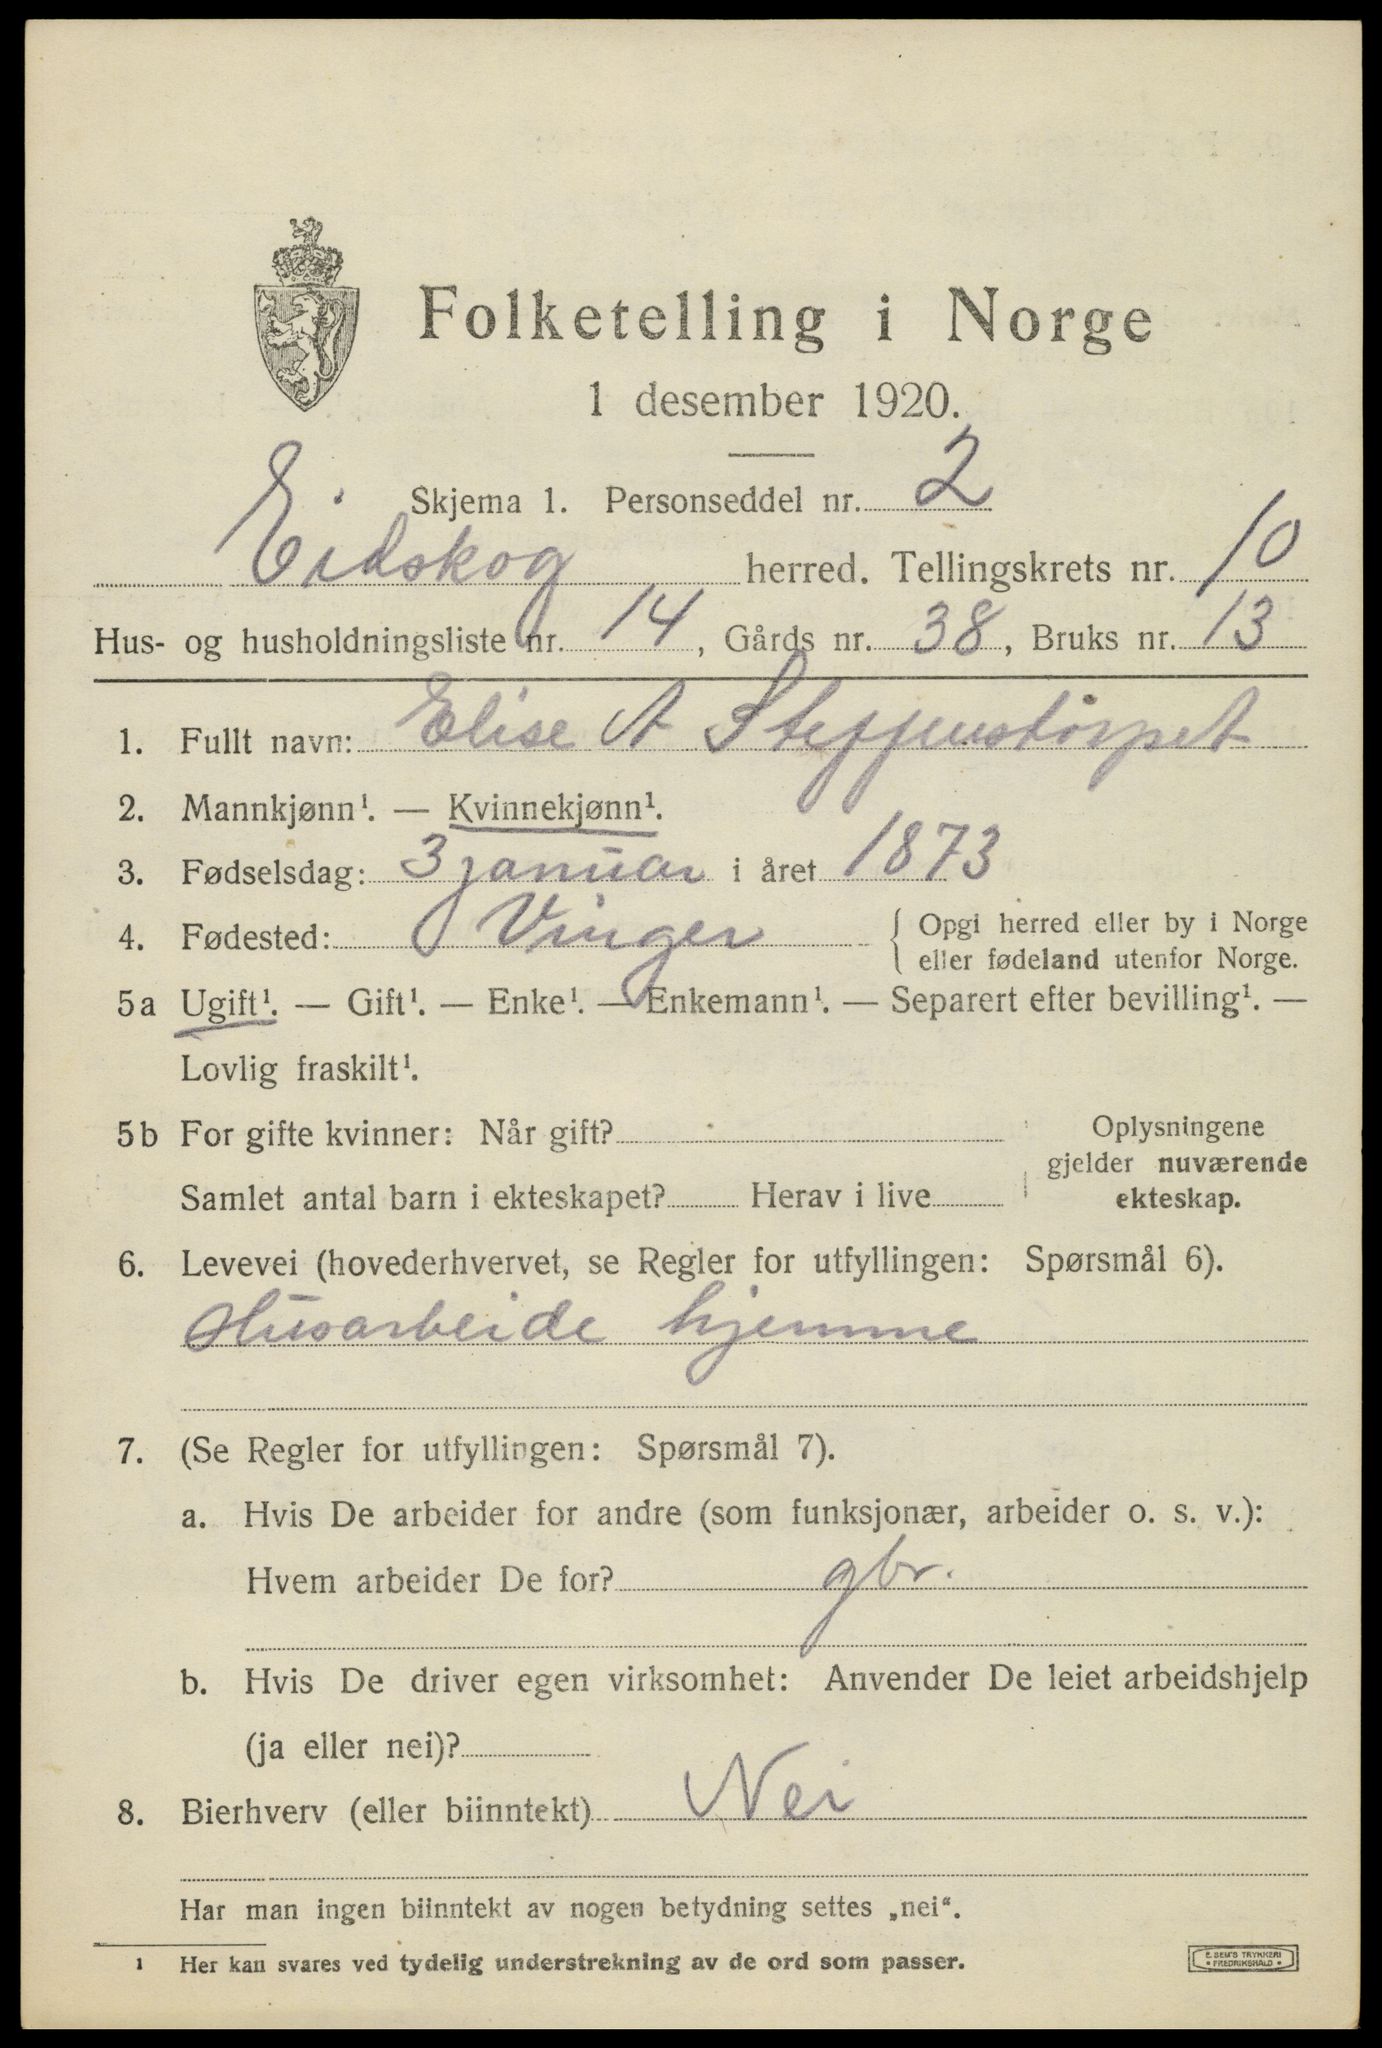 Folketelling i Norge
1 desember 1920.
Skjema 1. Personseddel nr. 2
Eidskog herred. Tellingskrets nr. 10
Hus- og husholdningsliste nr. 14, Gårds nr. 38, Bruks nr. 13
1. Fullt navn: Elise A Steffenstorpet
2. Mannkjønn¹. — Kvinnekjønn¹.
3. Fødselsdag: 3 januar i året 1873
4. Fødested: Vinger { Opgi herred eller by i Norge
eller fødeland utenfor Norge.
5a Ugift¹. — Gift¹. — Enke¹. — Enkemann¹. — Separert efter bevilling¹. —
Lovlig fraskilt¹.
5b For gifte kvinner: Når gift? Oplysningene
gjelder nuværende
Samlet antal barn i ekteskapet? Herav i live ekteskap.
6. Levevei (hovederhvervet, se Regler for utfyllingen: Spørsmål 6).
Husarbeide hjemme
7. (Se Regler for utfyllingen: Spørsmål 7).
a. Hvis De arbeider for andre (som funksjonær, arbeider o. s. v.):
Hvem arbeider De for? gbr.
b. Hvis De driver egen virksomhet: Anvender De leiet arbeidshjelp
(ja eller nei)?
8. Bierhverv (eller biinntekt) Nei
Har man ingen biinntekt av nogen betydning settes „nei“.
¹ Her kan svares ved tydelig understrekning av de ord som passer.
E. SEM'S TRYKKERI
• FREDRIKSHALD •